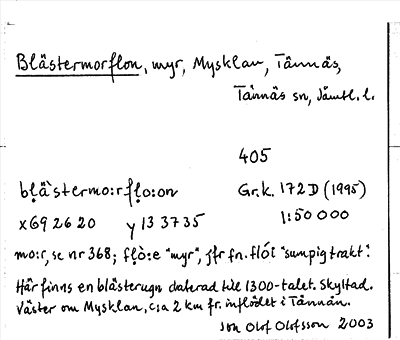 Blästermorflon, myr, Mysklan, Tännäs,
Tännäs sn, Jämtl. l.
405
bḷä`stermo:rfḷo:on
Gr.k. 172 D (1995)
x 69 26 20 y 13 37 35
1:50 000
mo:r, se nr 368; fḷò:e "myr", jfr fn. flói "sumpig trakt".
Här finns en blästerugn daterad till 1300-talet. Skyltad.
Väster om Mysklan, c:a 2 km fr. inflödet i Tännån.
Jon Olof Olofsson 2003